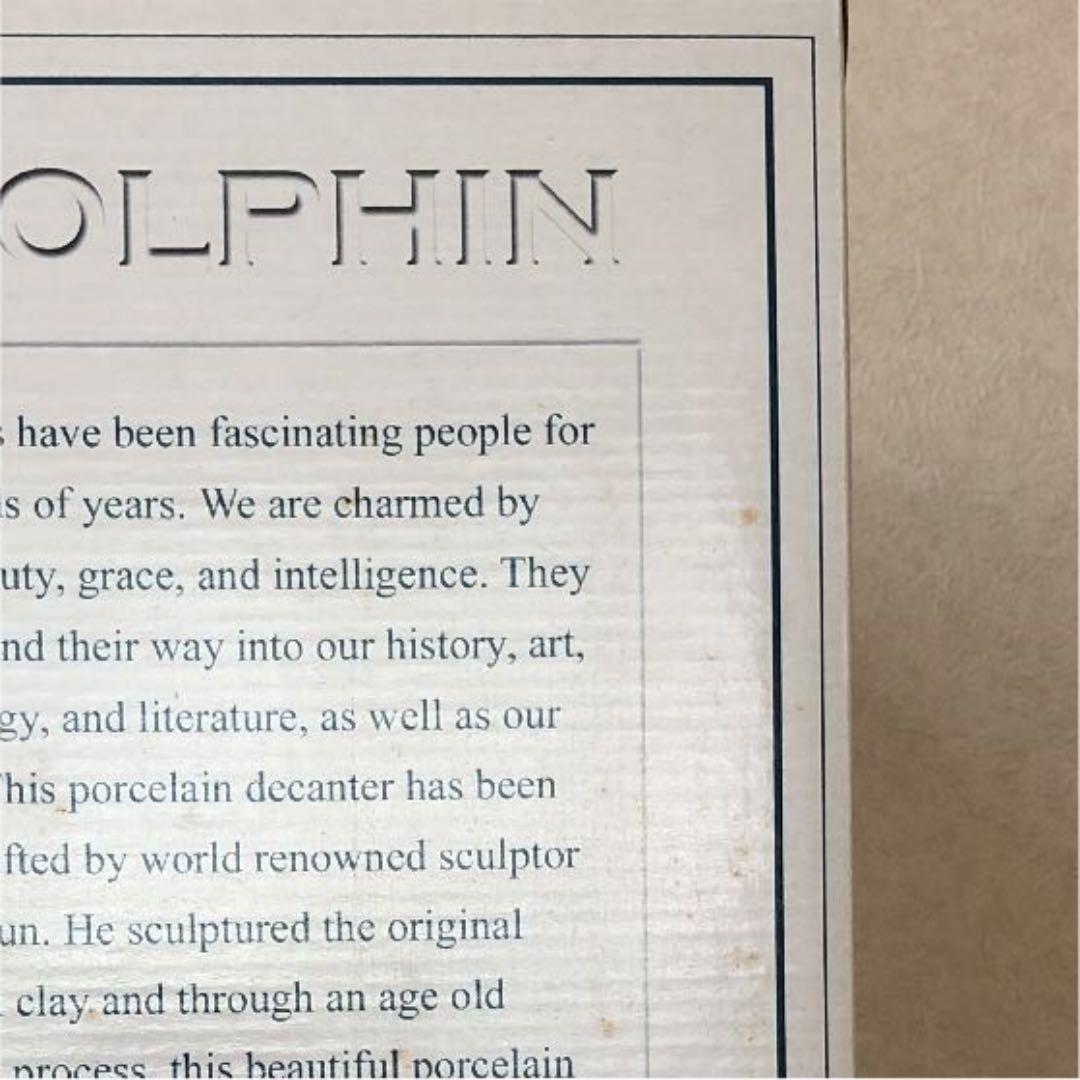 OLPHIN
s have been fascinating people for
s of years. We are charmed by
uty, grace, and intelligence. They
nd their way into our history, art,
gy, and literature, as well as our
his porcelain decanter has been
fted by world renowned sculptor
un. He sculptured the original
clay and through an age old
process, this beautiful porcelain